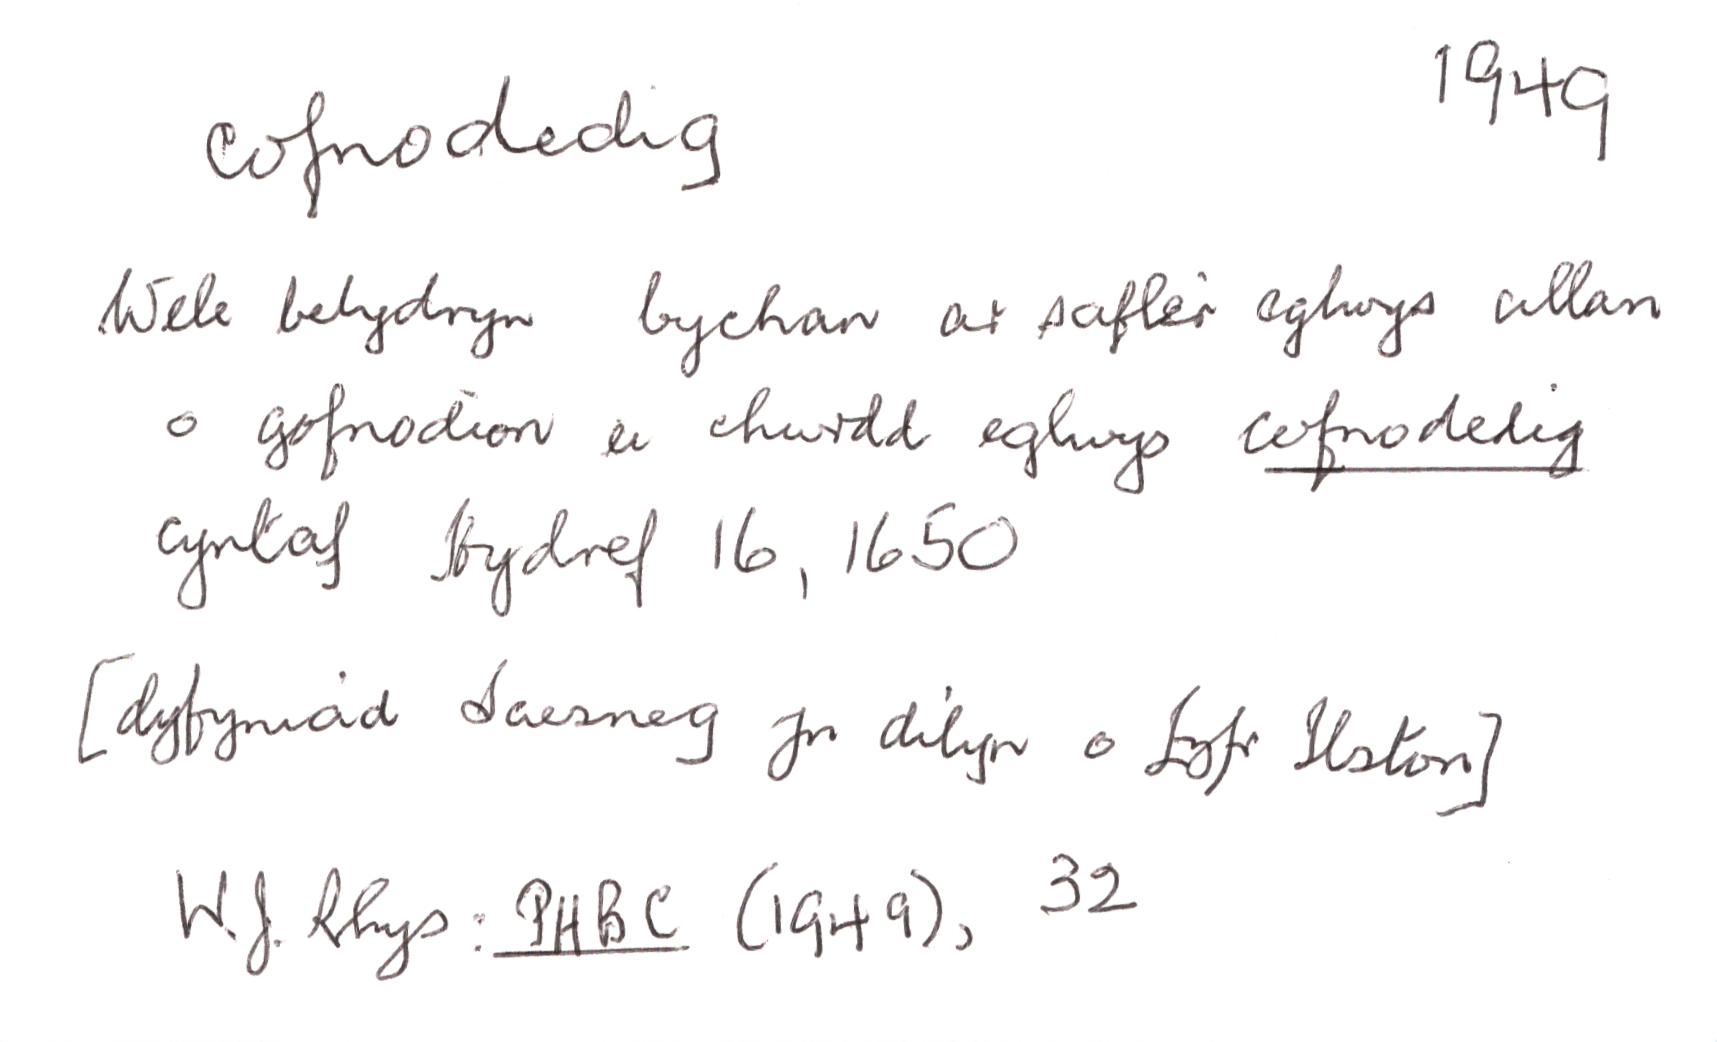 cofnodedig 1949
Wele belydryn bychan ar safle'r eglwys allan
o gofnodion ei chwrdd eglwys cofnodedig
cyntaf Hydref 16, 1650
[dyfyniad Saesneg yn dilyn o Lyfr Ilston]
W.J. Rhys: PHBC (1949), 32